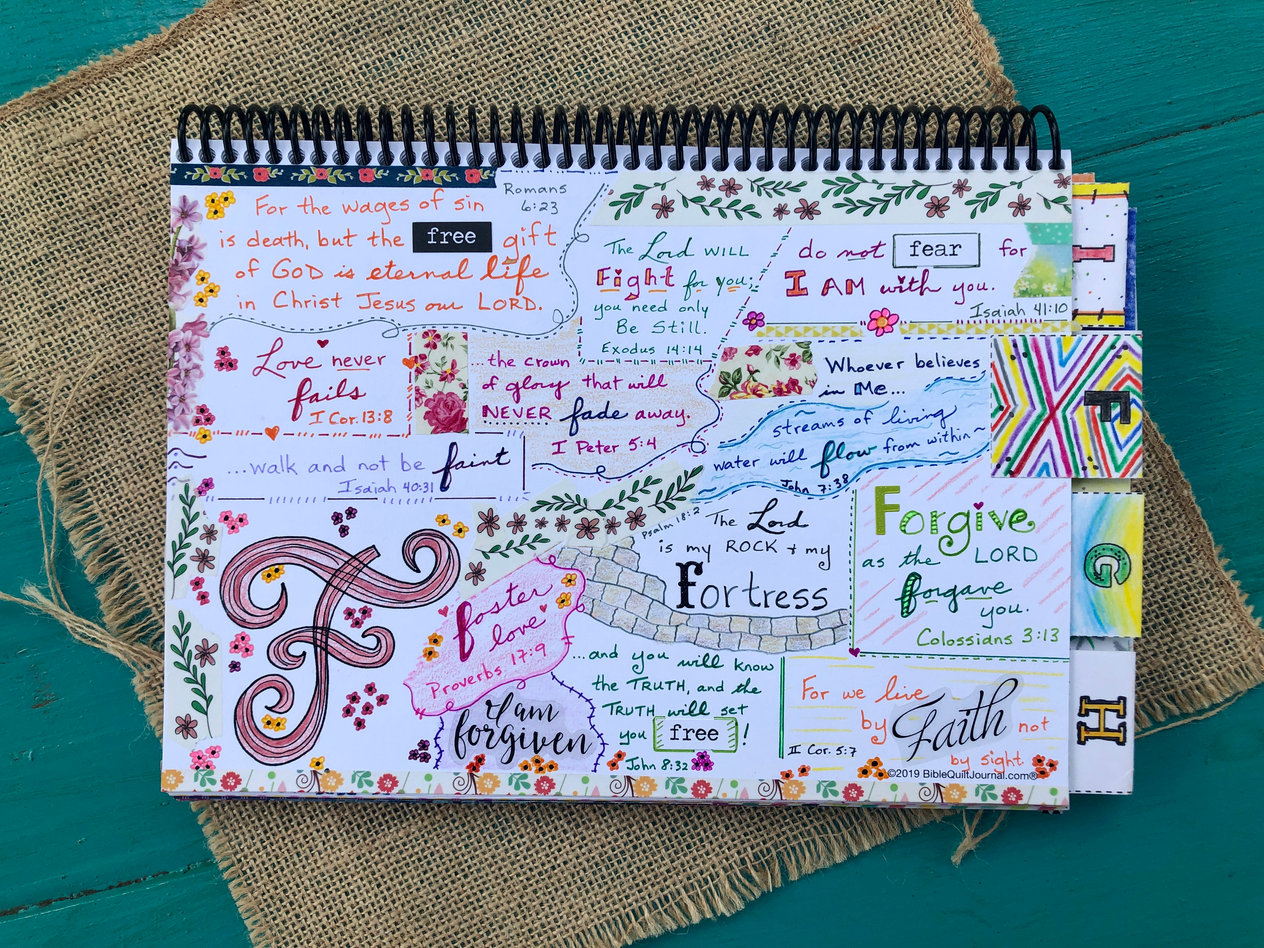 For the wages of sin
is death, but the free gift
of GOD is eternal life
in Christ Jesus our LORD.
Romans
6:23
The Lord WILL
Fight for you;
you need only
Be Still.
Exodus 14:14
do not fear for
I AM with you.
Isaiah 41:10
Love never
fails
I Cor. 13:8
...the crown
of glory that will
NEVER fade away.
I Peter 5:4
Whoever believes
in Me...
streams of living
water will flow from within~
John 7:38
...walk and not be faint
Isaiah 40:31
F
Psalm 18:2
The Lord
is my ROCK + my
Fortress
Forgive
as the LORD
forgave
you.
Colossians 3:13
foster
love
Proverbs 17:9
I am
forgiven
...and you will know
the TRUTH, and the
TRUTH will set
you free!
John 8:32
For we live
by Faith not
by sight
II Cor. 5:7
©2019 BibleQuiltJournal.com®
I
F
G
H